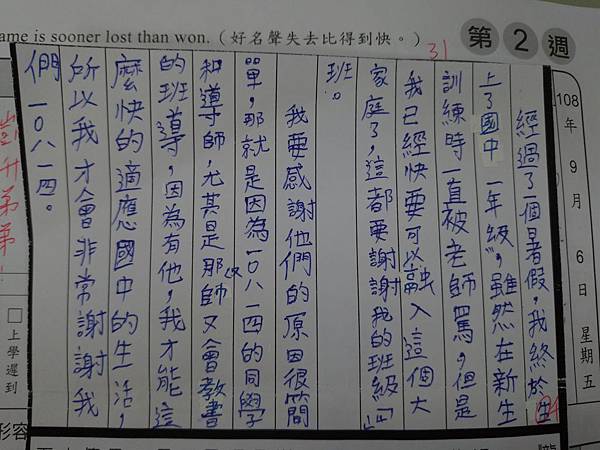 ame is sooner lost than won.(好名聲失去比得到快。)
第2週
108年9月6日星期五
31
經過了一個暑假,我終於生
上了國中一年級,雖然在新生
訓練時一直被老師罵,但是
我已經快要可以融入這個大
家庭了,這都要謝謝我的班級「」
班。
我要感謝他們的原因很簡
單,那就是因為一〇八一四的同學
和導師,尤其是那師又會教書
的班導,因為有他,我才能這
麼快的適應國中的生活,
所以我才會非常謝謝我
們一〇八一四。
□上學遲到
形容